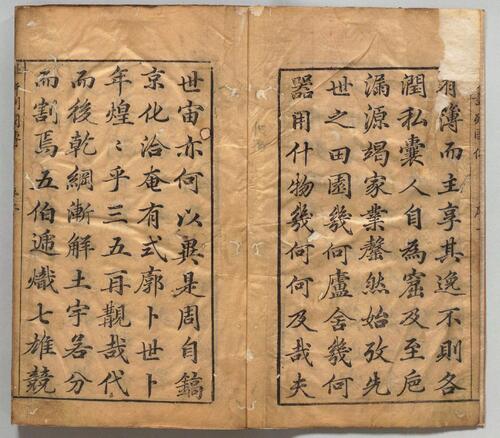 有簿而主享其逸不則各
潤私囊人自為窟及至巵
漏源竭家業罄然始攷先
世之田園幾何廬舍幾何
器用什物幾何何及哉夫
世宙亦何以異是周自鎬
京化洽奄有式廓卜世卜
年煌〻乎三五再覩哉代
而後乾綱漸解土宇畧分
而割焉五伯遞熾七雄競